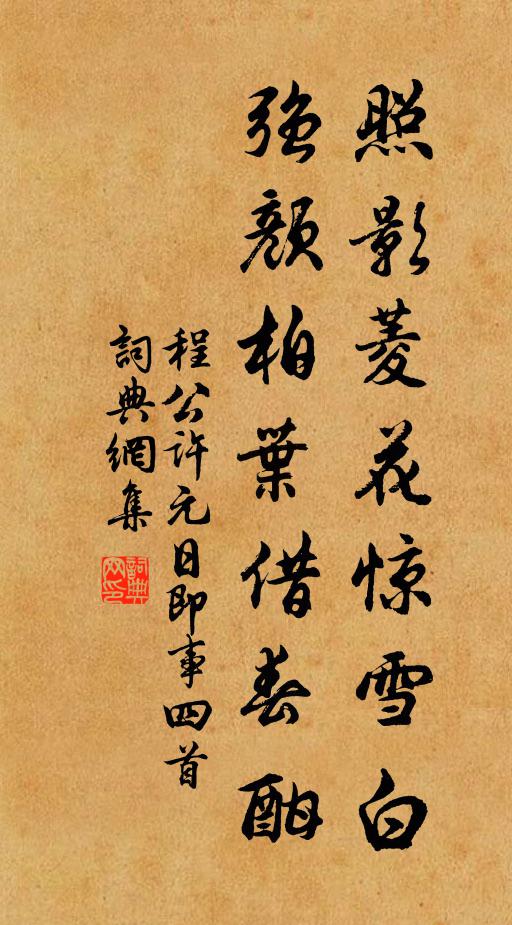 照影菱花惊雪白
強顔柏葉借春酣
程公許元日即事四首
詞典網集
詞典网印